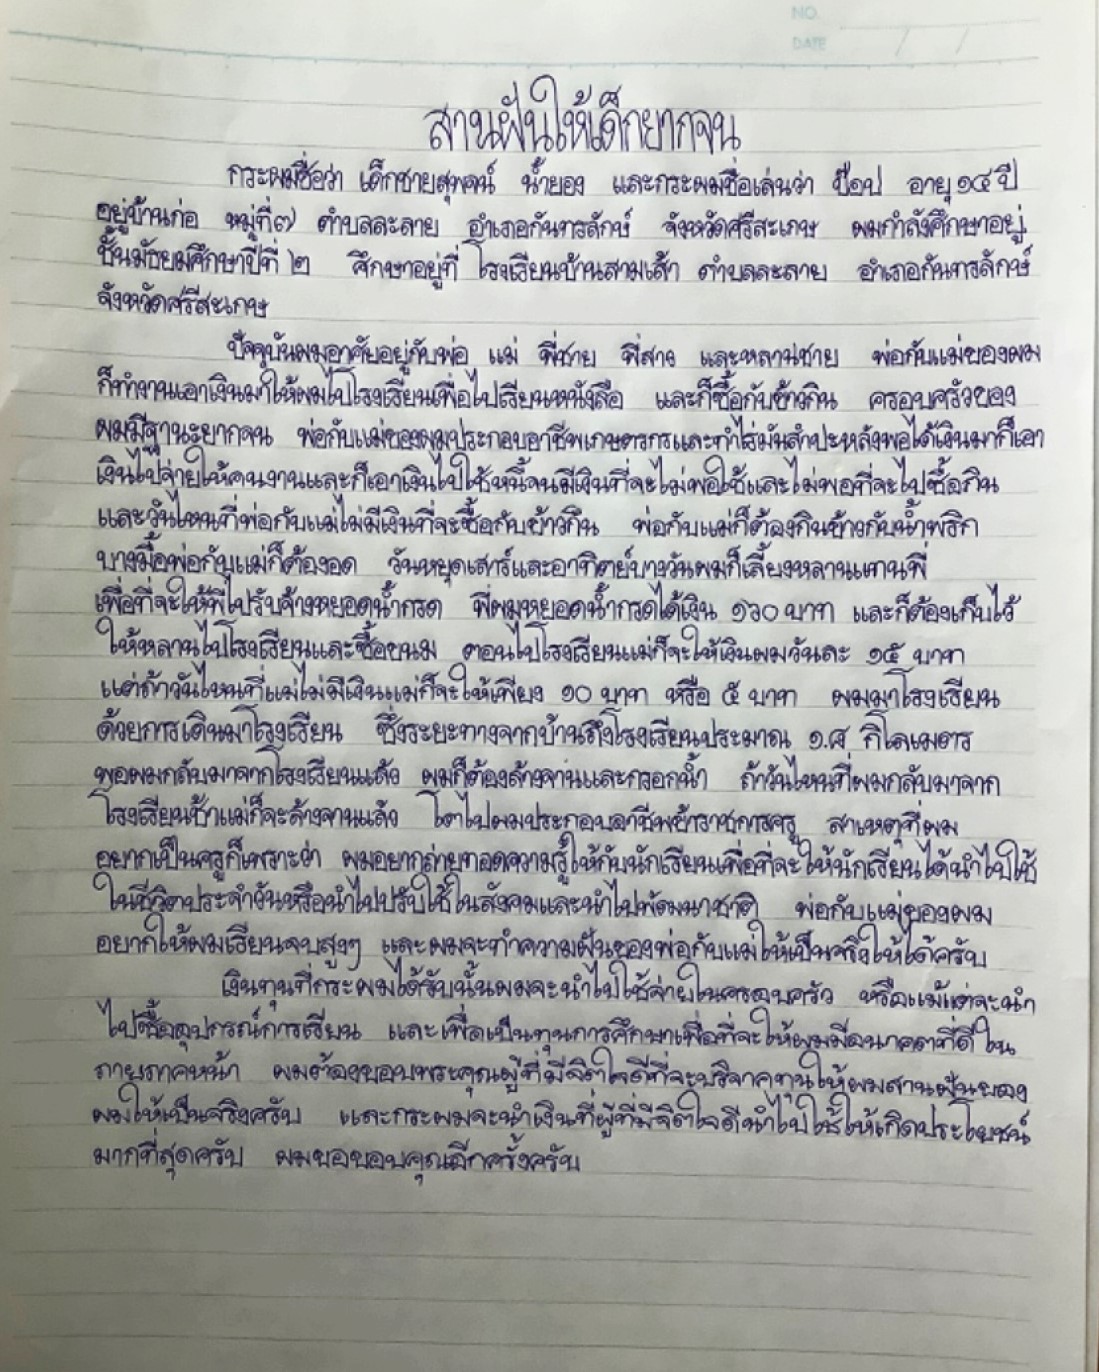 NO.
DATE
สานฝันให้เด็กยากจน
กระผมชื่อว่า เด็กชายสุพจน์ น้ำยอง และกระผมชื่อเล่นว่า ป๊อป อายุ ๑๔ ปี
อยู่บ้านก่อ หมู่ที่๗ ตำบลละลาย อำเภอกันทรลักษ์ จังหวัดศรีสะเกษ ผมกำลังศึกษาอยู่
ชั้นมัธยมศึกษาปีที่ ๒ ศึกษาอยู่ที่ โรงเรียนบ้านสามเส้า ตำบลละลาย อำเภอกันทรลักษ์
จังหวัดศรีสะเกษ
ปัจจุบันผมอาศัยอยู่กับพ่อ แม่ พี่ชาย พี่สาว และหลานชาย พ่อกับแม่ของผม
ก็ทำงานเอาเงินมาให้ผมไปโรงเรียนเพื่อไปเรียนหนังสือ และก็ซื้อกับข้าวกิน ครอบครัวของ
ผมมีฐานะยากจน พ่อกับแม่ของผมประกอบอาชีพเกษตรกรและทำไร่มันสำปะหลังพอได้เงินมาก็เอา
เงินไปจ่ายให้คนงานและก็เอาเงินไปใช้หนี้จนมีเงินที่จะไม่พอใช้และไม่พอที่จะไปซื้อกิน
และวันไหนที่พ่อกับแม่ไม่มีเงินที่จะซื้อกับข้าวกิน พ่อกับแม่ก็ต้องกินข้าวกับน้ำพริก
บางมื้อพ่อกับแม่ก็ต้องอด วันหยุดเสาร์และอาทิตย์บางวันผมก็เลี้ยงหลานแทนพี่
เพื่อที่จะให้พี่ไปรับจ้างหยอดน้ำกรด พี่ผมหยอดน้ำกรดได้เงิน ๑๖๐ บาท และก็ต้องเก็บไว้
ให้หลานไปโรงเรียนและซื้อขนม ตอนไปโรงเรียนแม่ก็จะให้เงินผมวันละ ๑๕ บาท
แต่ถ้าวันไหนที่แม่ไม่มีเงินแม่ก็จะให้เพียง ๑๐ บาท หรือ ๕ บาท ผมมาโรงเรียน
ด้วยการเดินมาโรงเรียน ซึ่งระยะทางจากบ้านถึงโรงเรียนประมาณ ๑.๙ กิโลเมตร
พอผมกลับมาจากโรงเรียนแล้ว ผมก็ต้องล้างจานและกรอกน้ำ ถ้าวันไหนที่ผมกลับมาจาก
โรงเรียนช้าแม่ก็จะล้างจานแล้ว โตไปผมประกอบอาชีพข้าราชการครู สาเหตุที่ผม
อยากเป็นครูก็เพราะว่า ผมอยากถ่ายทอดความรู้ให้กับนักเรียนเพื่อที่จะให้นักเรียนได้นำไปใช้
ในชีวิตประจำวันหรือนำไปปรับใช้ในสังคมและนำไปพัฒนาชาติ พ่อกับแม่ของผม
อยากให้ผมเรียนจบสูงๆ และผมจะทำความฝันของพ่อกับแม่ให้เป็นจริงให้ได้ครับ
เงินทุนที่กระผมได้รับนั้นผมจะนำไปใช้จ่ายในครอบครัว หรือแม้แต่จะนำ
ไปซื้ออุปกรณ์การเรียน และเพื่อเป็นทุนการศึกษาเพื่อที่จะให้ผมมีอนาคตที่ดีใน
ภายภาคหน้า ผมต้องขอบพระคุณผู้ที่มีจิตใจดีที่จะบริจาคทุนให้ผมสานฝันของ
ผมให้เป็นจริงครับ และกระผมจะนำเงินที่ผู้ที่มีจิตใจดีนำไปใช้ให้เกิดประโยชน์
มากที่สุดครับ ผมขอขอบคุณอีกครั้งครับ